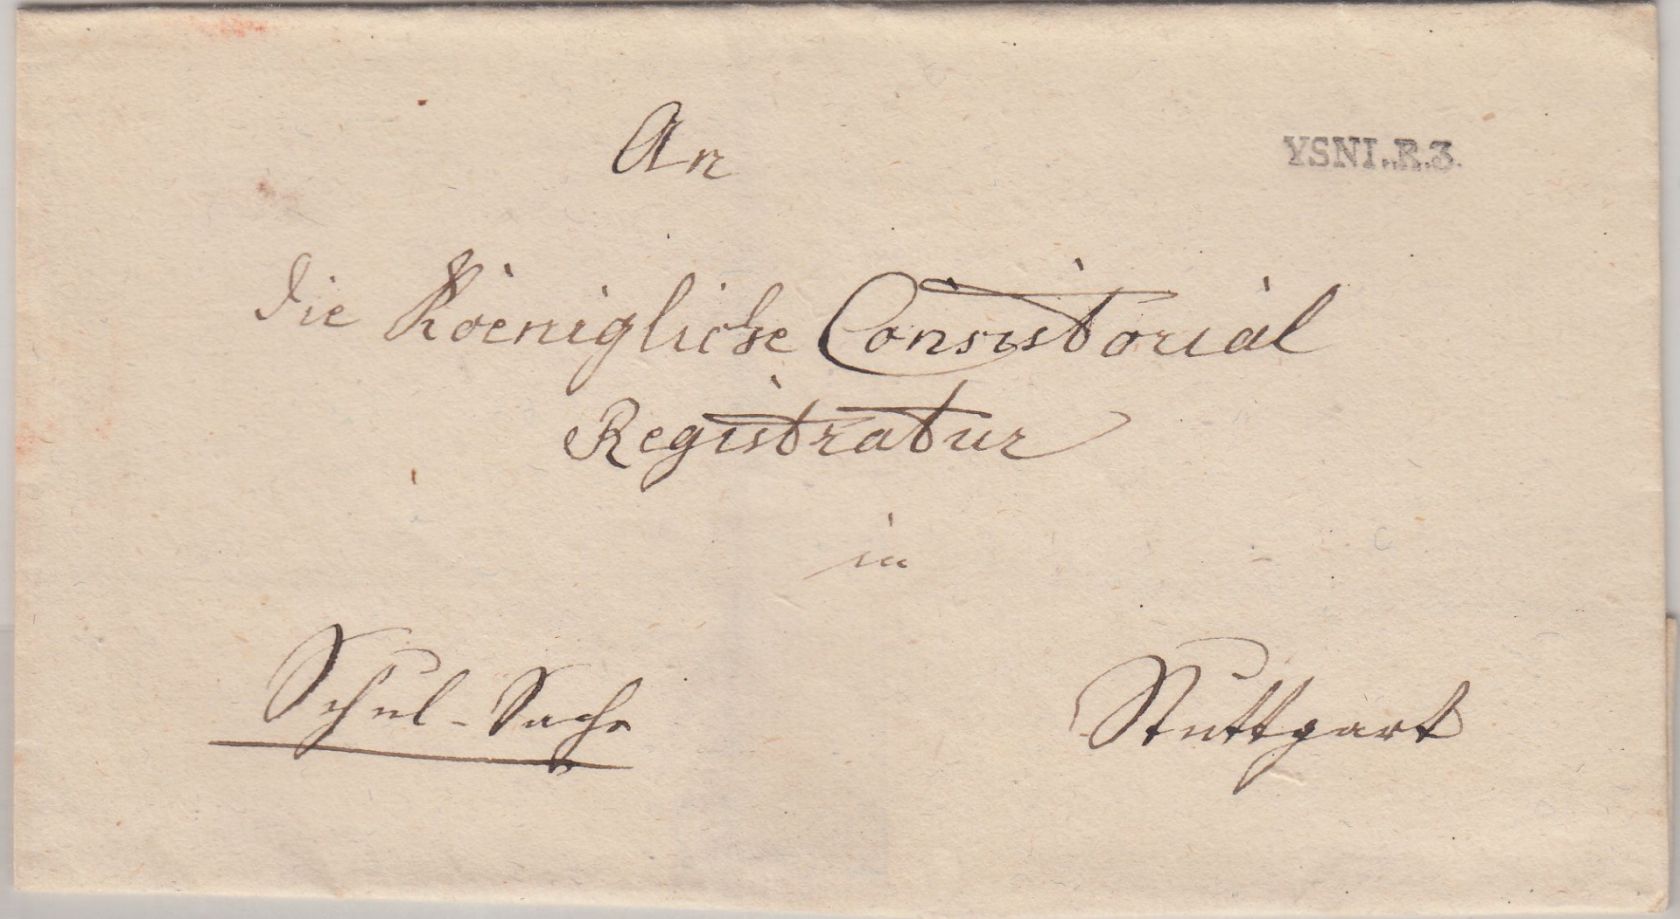 An
YSNI..R.3.
die Koenigliche Consistorial
Registratur
in
Schul-Sache
Stuttgart